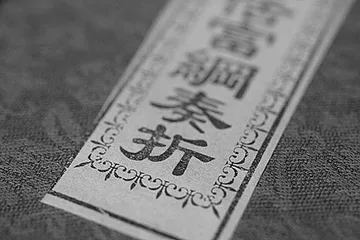 富綱奏折